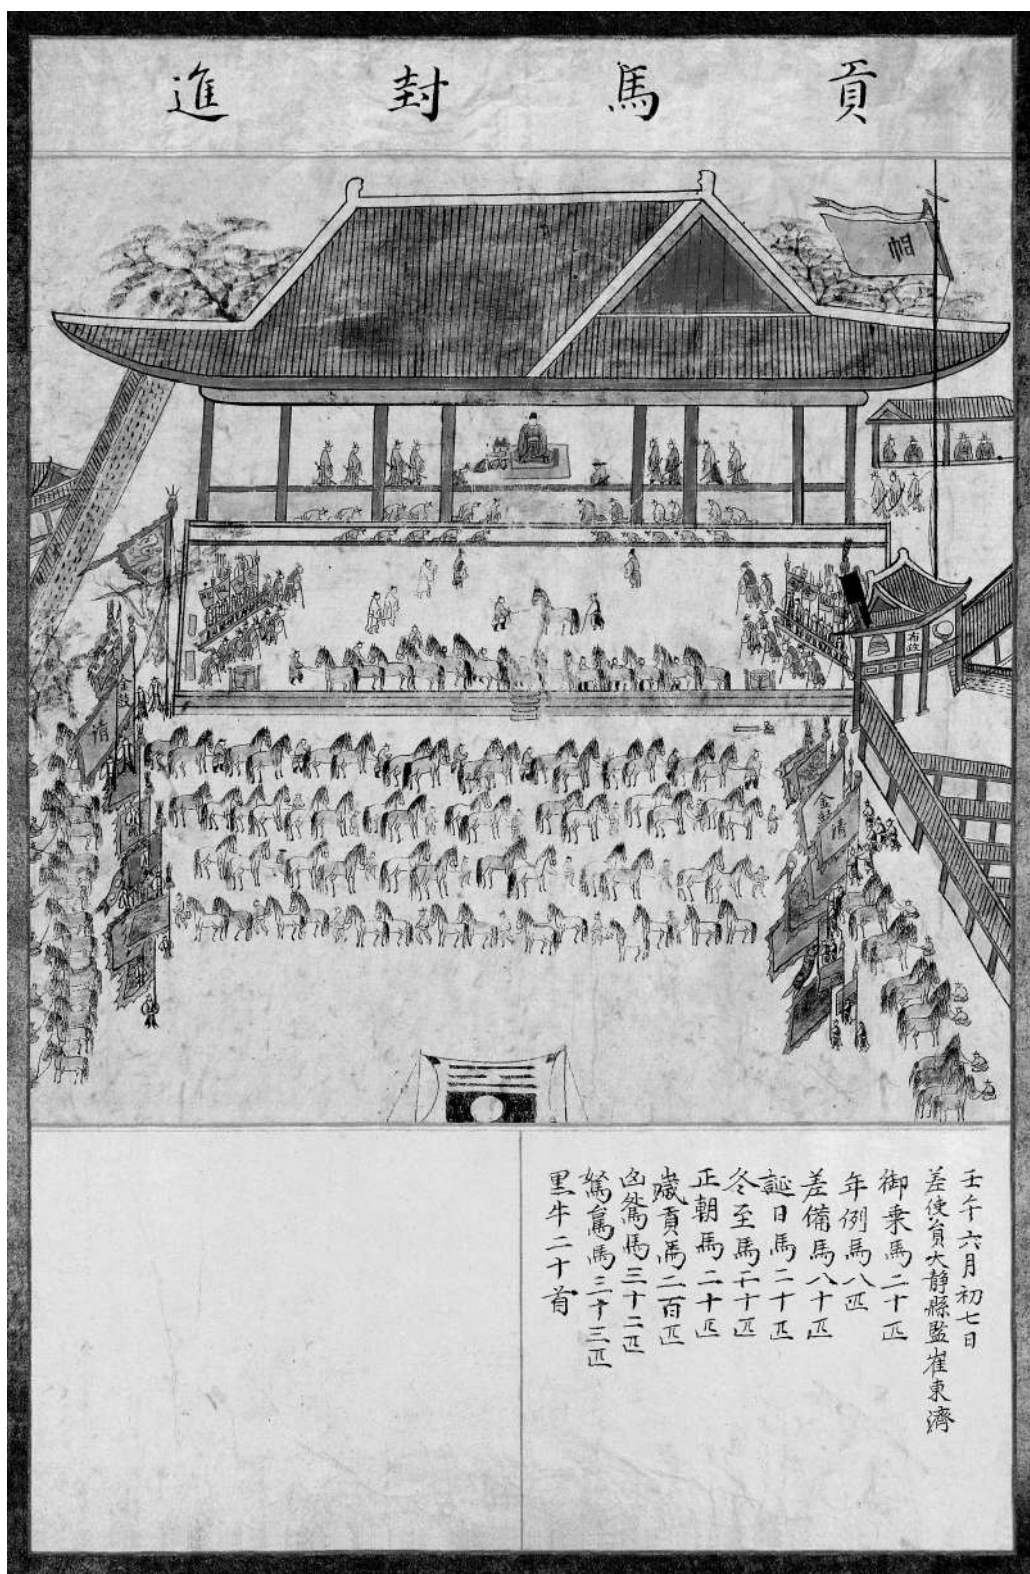 貢馬封進
帽
布政
清
金鼓
清
壬午六月初七日
差使員大静縣監崔東濟
御乗馬二十匹
年例馬八匹
差備馬八十匹
誕日馬二十匹
冬至馬二十匹
正朝馬二十匹
歲貢馬二百匹
凶咎馬三十二匹
駑駑馬三十三匹
黒牛二十首